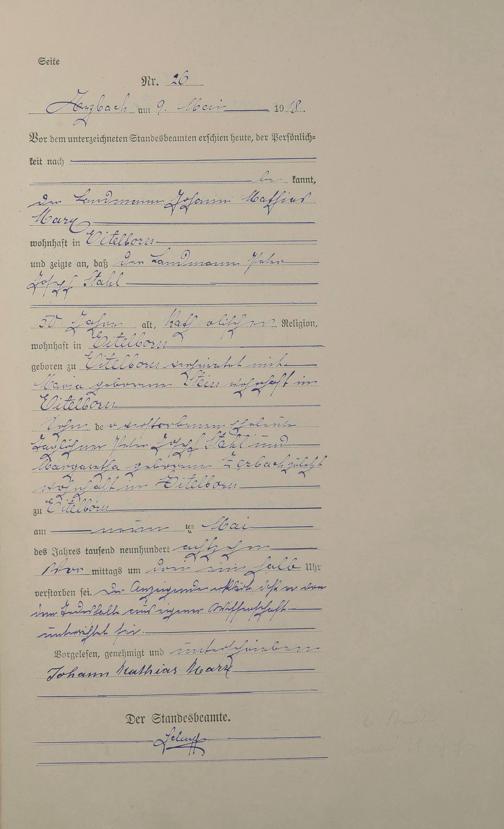 Seite
Nr. 26
Arzbach am 9. Mai 1918.
Vor dem unterzeichneten Standesbeamten erschien heute, der Persönlich=
keit nach
be kannt,
der Landmann Johann Mathias
Marx
wohnhaft in Eitelborn
und zeigte an, daß der Landmann Peter
Josef Stahl
50 Jahre alt, katholischen Religion,
wohnhaft in Eitelborn
geboren zu Eitelborn verheiratet mit
Maria geborenen Stein wohnhaft in
Eitelborn
Sohn de r verstorbenen Eheleute
Taglöhner Peter Josef Stahl und
Margaretha geborenen zuletzt
wohnhaft in Eitelborn
zu Eitelborn
am neun ten Mai
des Jahres tausend neunhundert achtzehn
Vor mittags um ein halb Uhr
verstorben sei. Der Anzeigende erklärt, daß er von
dem Todesfalle aus eigener Wissenschaft
unterrichtet sei.
Vorgelesen, genehmigt und unterschrieben
Johann Mathias Marx
Der Standesbeamte.